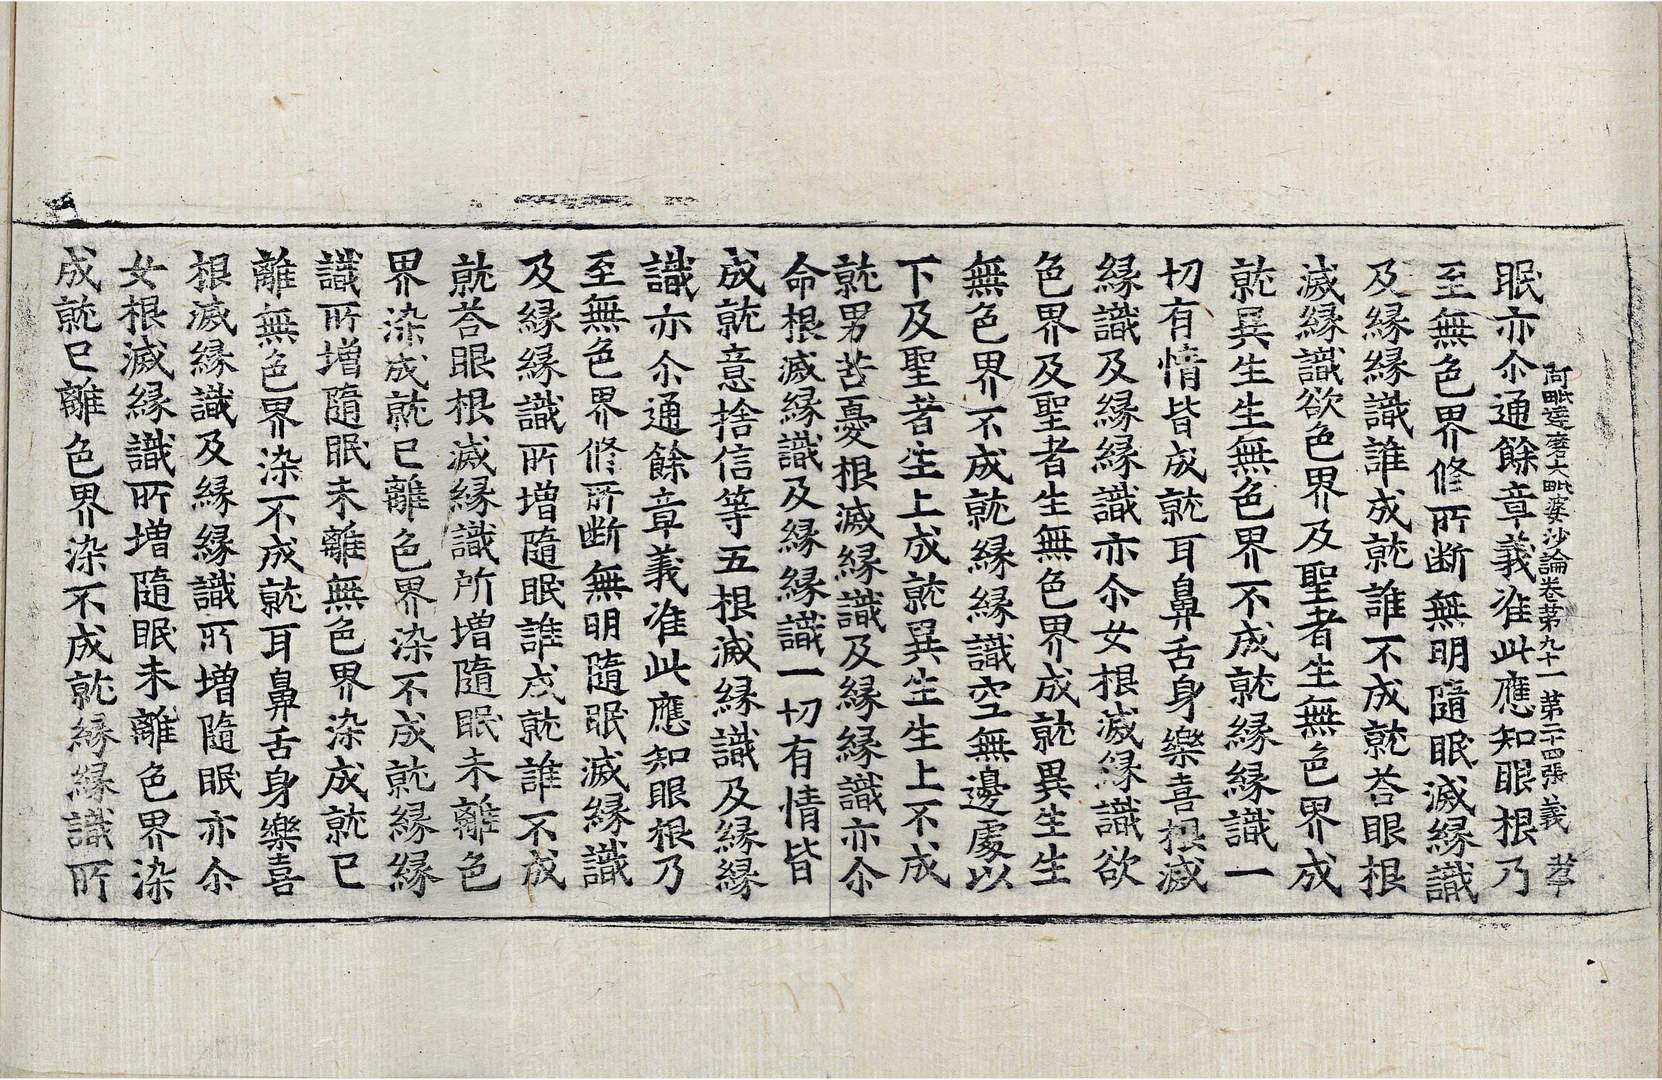 阿毗達磨大毗婆沙論卷苐九十一 第二十四張 義
眠亦尒通餘章義准此應知眼根乃
至無色界修所断無明隨眠滅縁識
及縁縁識誰成就誰不成就荅眼根
滅縁識欲色界及聖者生無色界成
就異生生無色界不成就縁縁識一
切有情皆成就耳鼻舌身樂喜根滅
縁識及縁縁識亦尒女根滅縁識欲
色界及聖者生無色界成就異生生
無色界不成就縁縁識空無邊處以
下及聖者生上成就異生生上不成
就男苦憂根滅縁識及縁縁識亦尒
命根滅縁識及縁縁識一切有情皆
成就意捨信等五根滅縁識及縁縁
識亦尒通餘章義准此應知眼根乃
至無色界修所断無明隨眠滅縁識
及縁縁識所增隨眠誰成就誰不成
就荅眼根滅縁識所增隨眠未離色
界染成就已離色界染不成就縁縁
識所增隨眠未離無色界染成就已
離無色界染不成就耳鼻舌身樂喜
根滅縁識及縁縁識所增隨眠亦尒
女根滅縁識所增隨眠未離色界染
成就已離色界染不成就縁縁識所